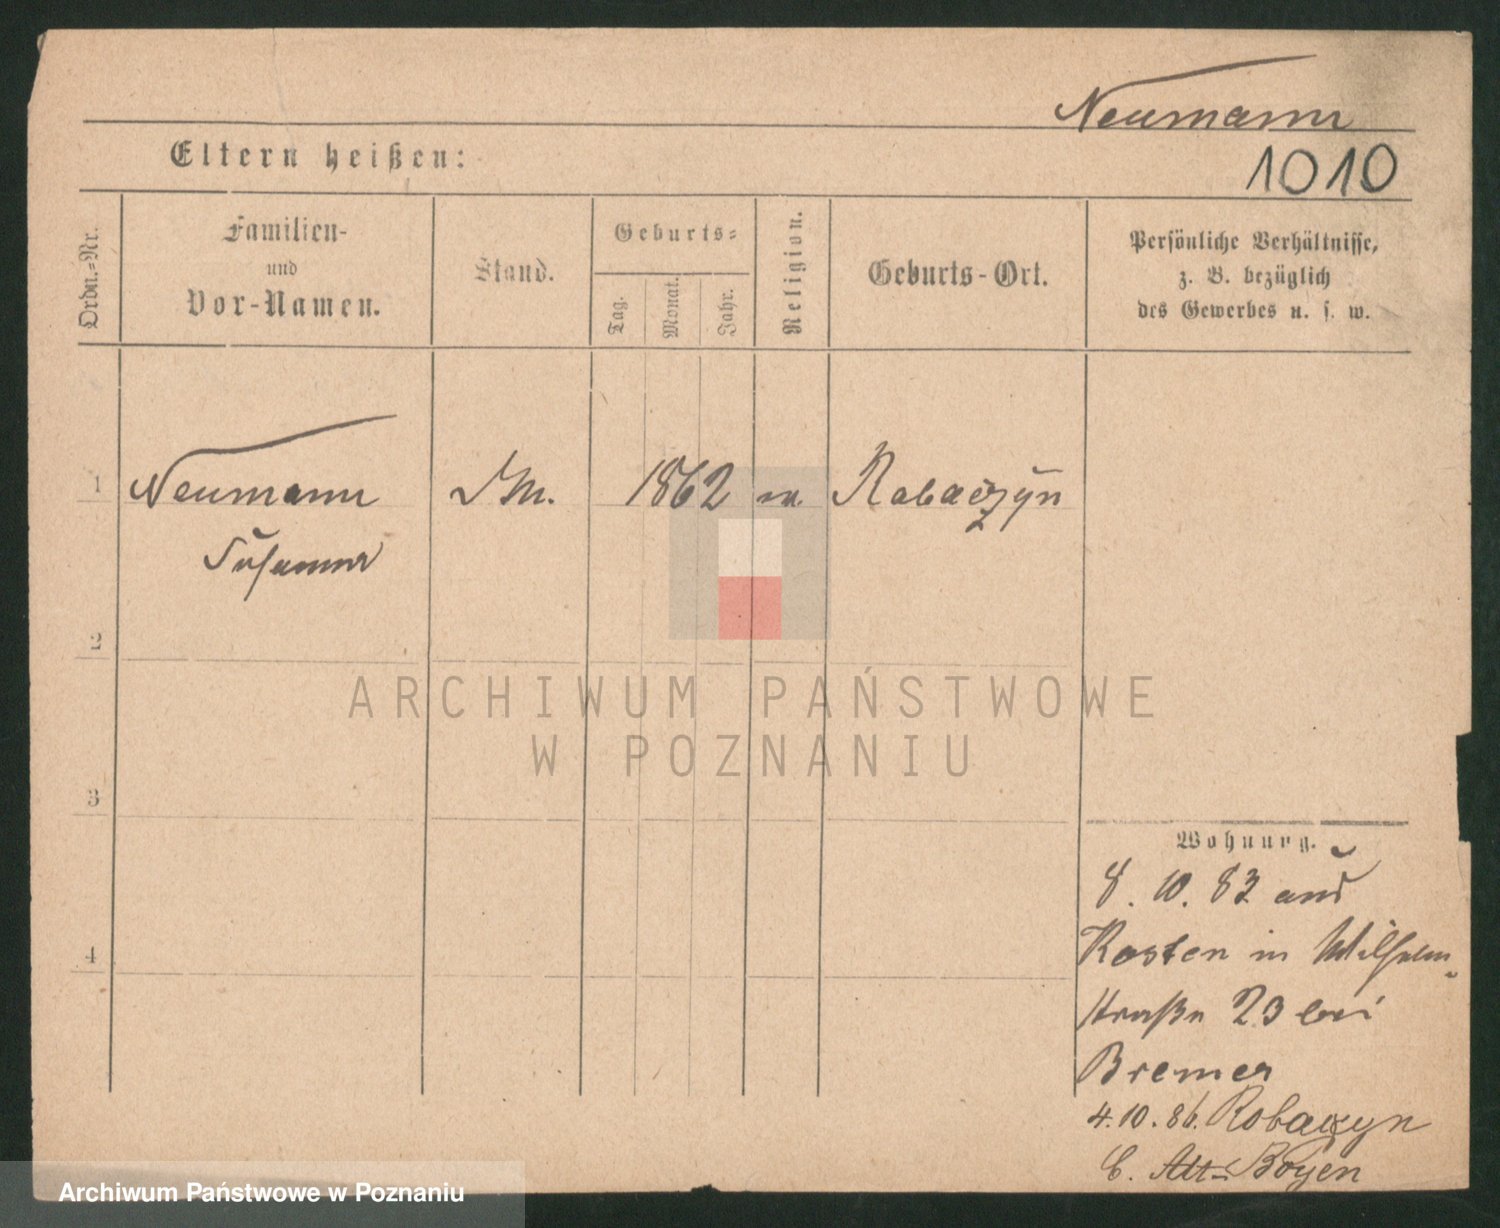 Neumann
Eltern heißen:
1010
Ordn.-Nr.
Familien-
und
Vor-Namen.
Stand.
Geburts-
Tag.
Monat.
Jahr.
Religion.
Geburts-Ort.
Persönliche Verhältnisse,
z. B. bezüglich
des Gewerbes u. s. w.
1 Neumann 1862 Rabaczyn
Susanna
2
3
Wohnung.
8. 10. 83 aus
4
Kosten in Wilhelm-
straße 23 bei
Bremer
4. 10. 86. Robaczyn
b. Alt-Boyen
ARCHIWUM PAŃSTWOWE
W POZNANIU
Archiwum Państwowe w Poznaniu